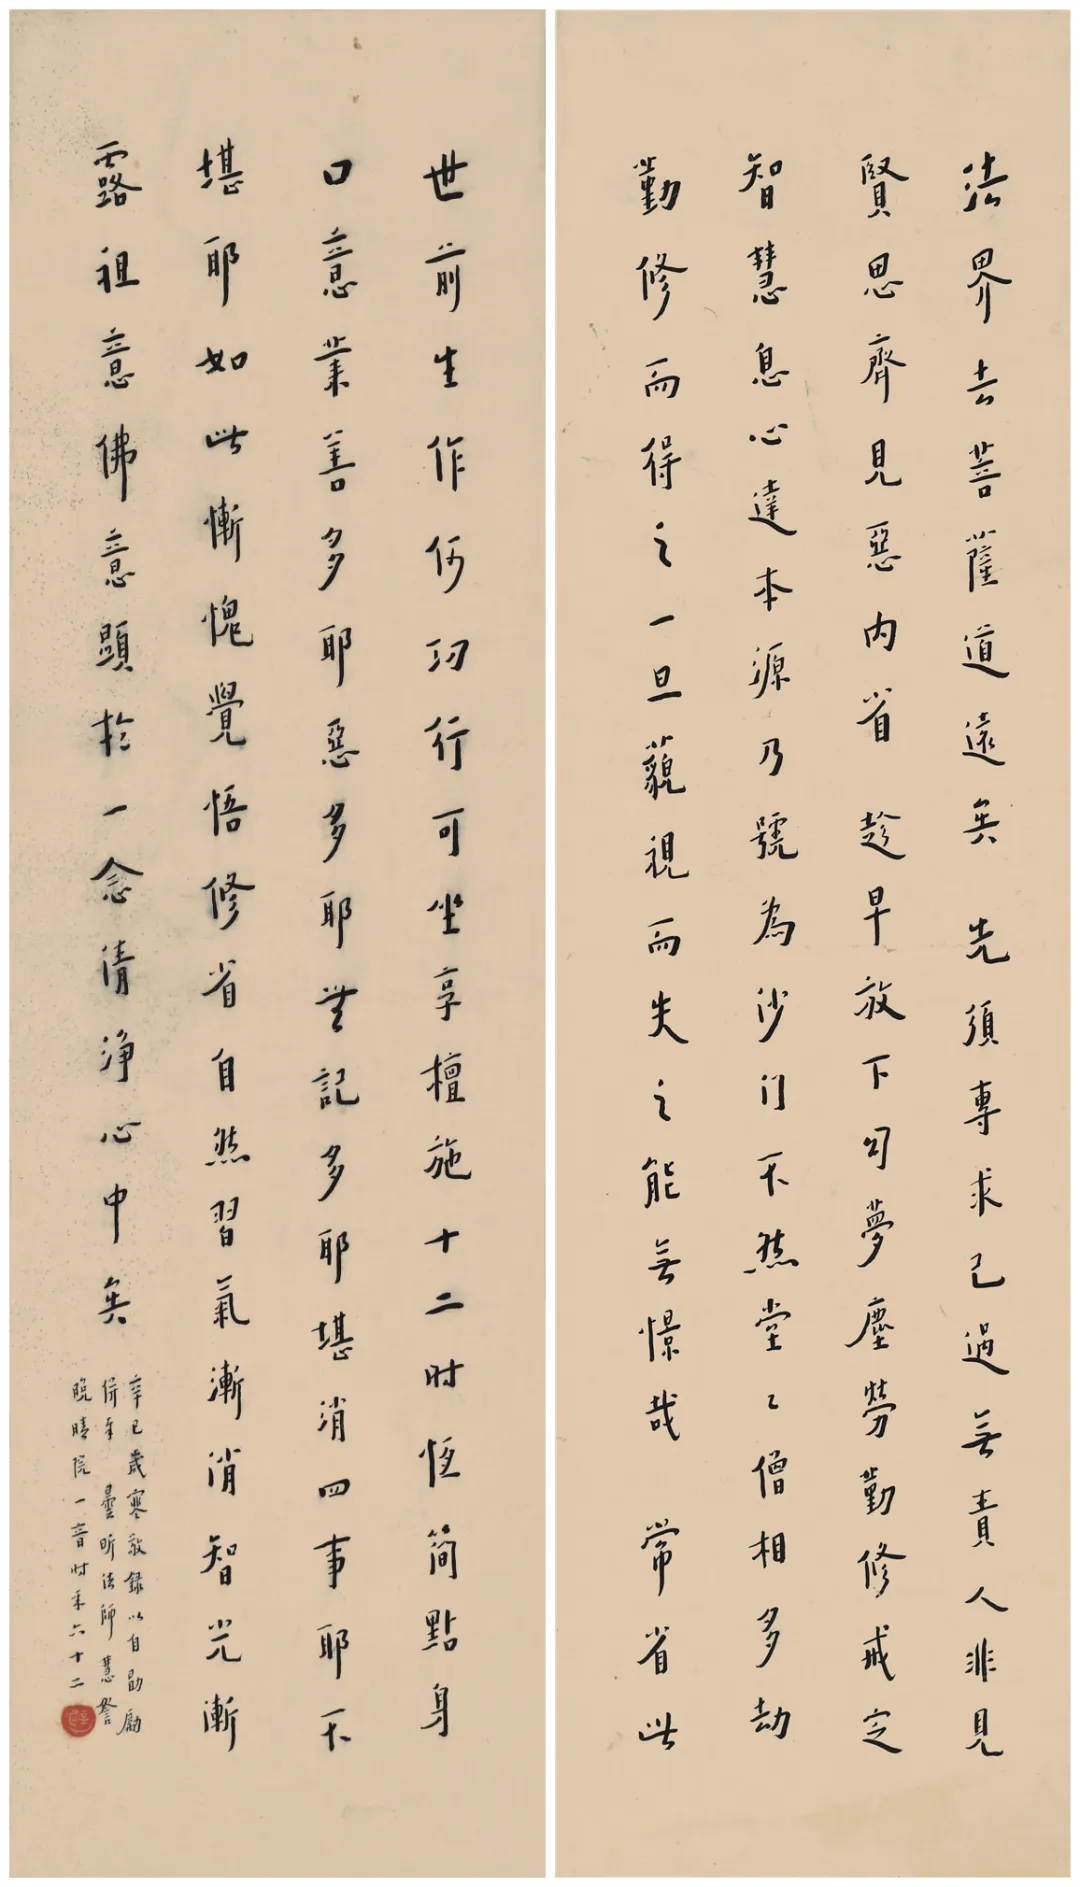 法界去菩薩道遠矣 先須專求己過無責人非見
賢思齊見惡內省 趁早放下勾夢塵勞勤修戒定
智慧息心達本源乃號為沙门不然堂〻僧相多劫
勤修而得之一旦藐視而失之能無憬哉 常省此
世前生作何功行可坐享檀施十二时恆簡點身
口意業善多耶惡多耶無記多耶堪消四事耶不
堪耶如此慚愧覺悟修省自然習氣漸消智光漸
露祖意佛意顯於一念清淨心中矣
辛巳歲寒敬錄以自勖勵
併奉 曇昕法師慧詧
晚晴院一音时年六十二